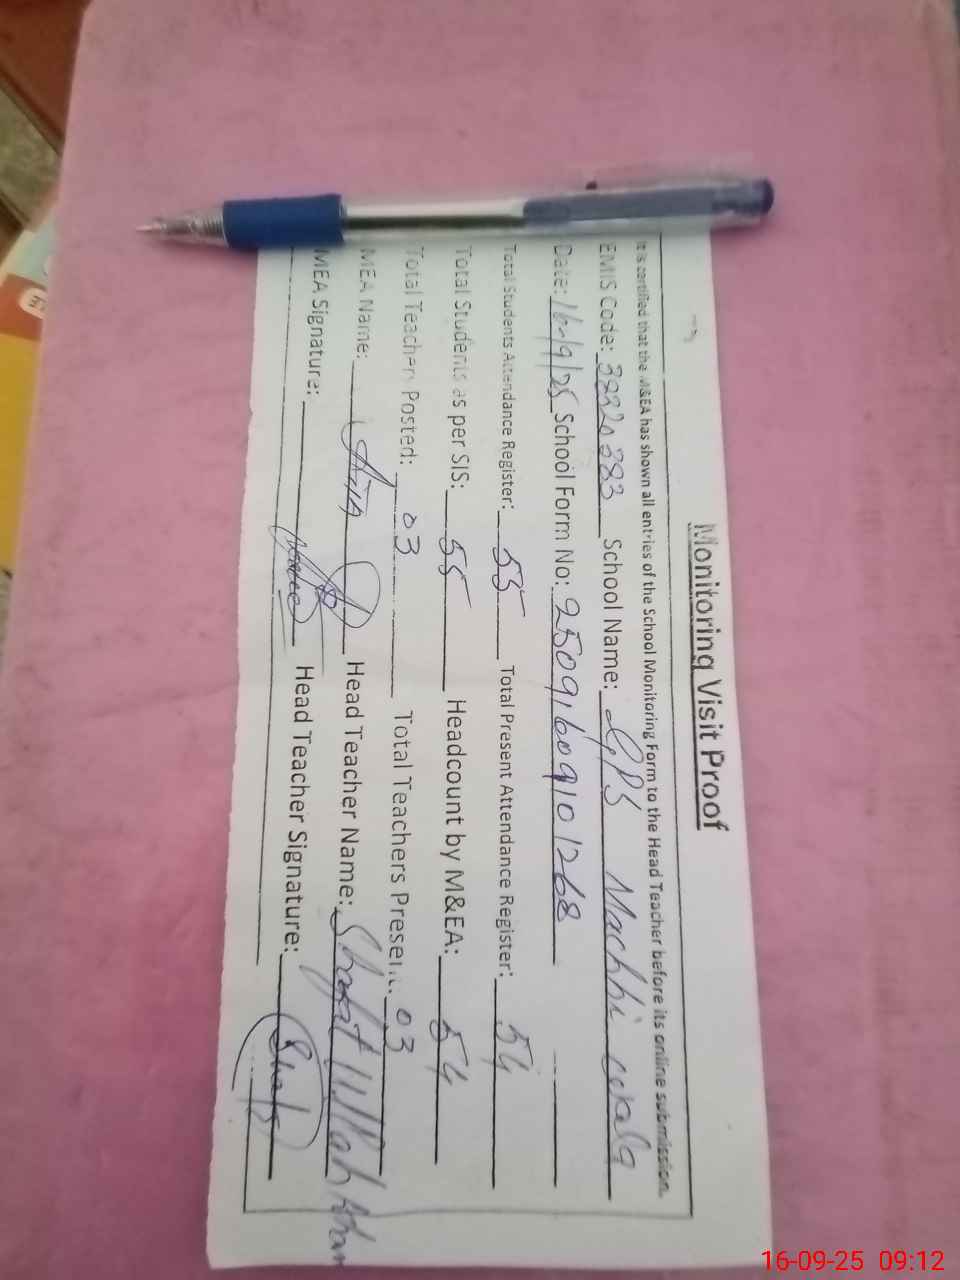 Monitoring Visit Proof
It is certified that the M&EA has shown all entries of the School Monitoring Form to the Head Teacher before its online submission.
EMIS Code: 38320383 School Name: GPS Machhi wala
Date: 16/9/25 School Form No: 25091609101268
Total Students Attendance Register: 55 Total Present Attendance Register: 54
Total Students as per SIS: 55 Headcount by M&EA: 54
Total Teachers Posted: 03 Total Teachers Present: 03
MEA Name: Head Teacher Name: Shafat Ullah Khan
MEA Signature: Head Teacher Signature:
16-09-25 09:12